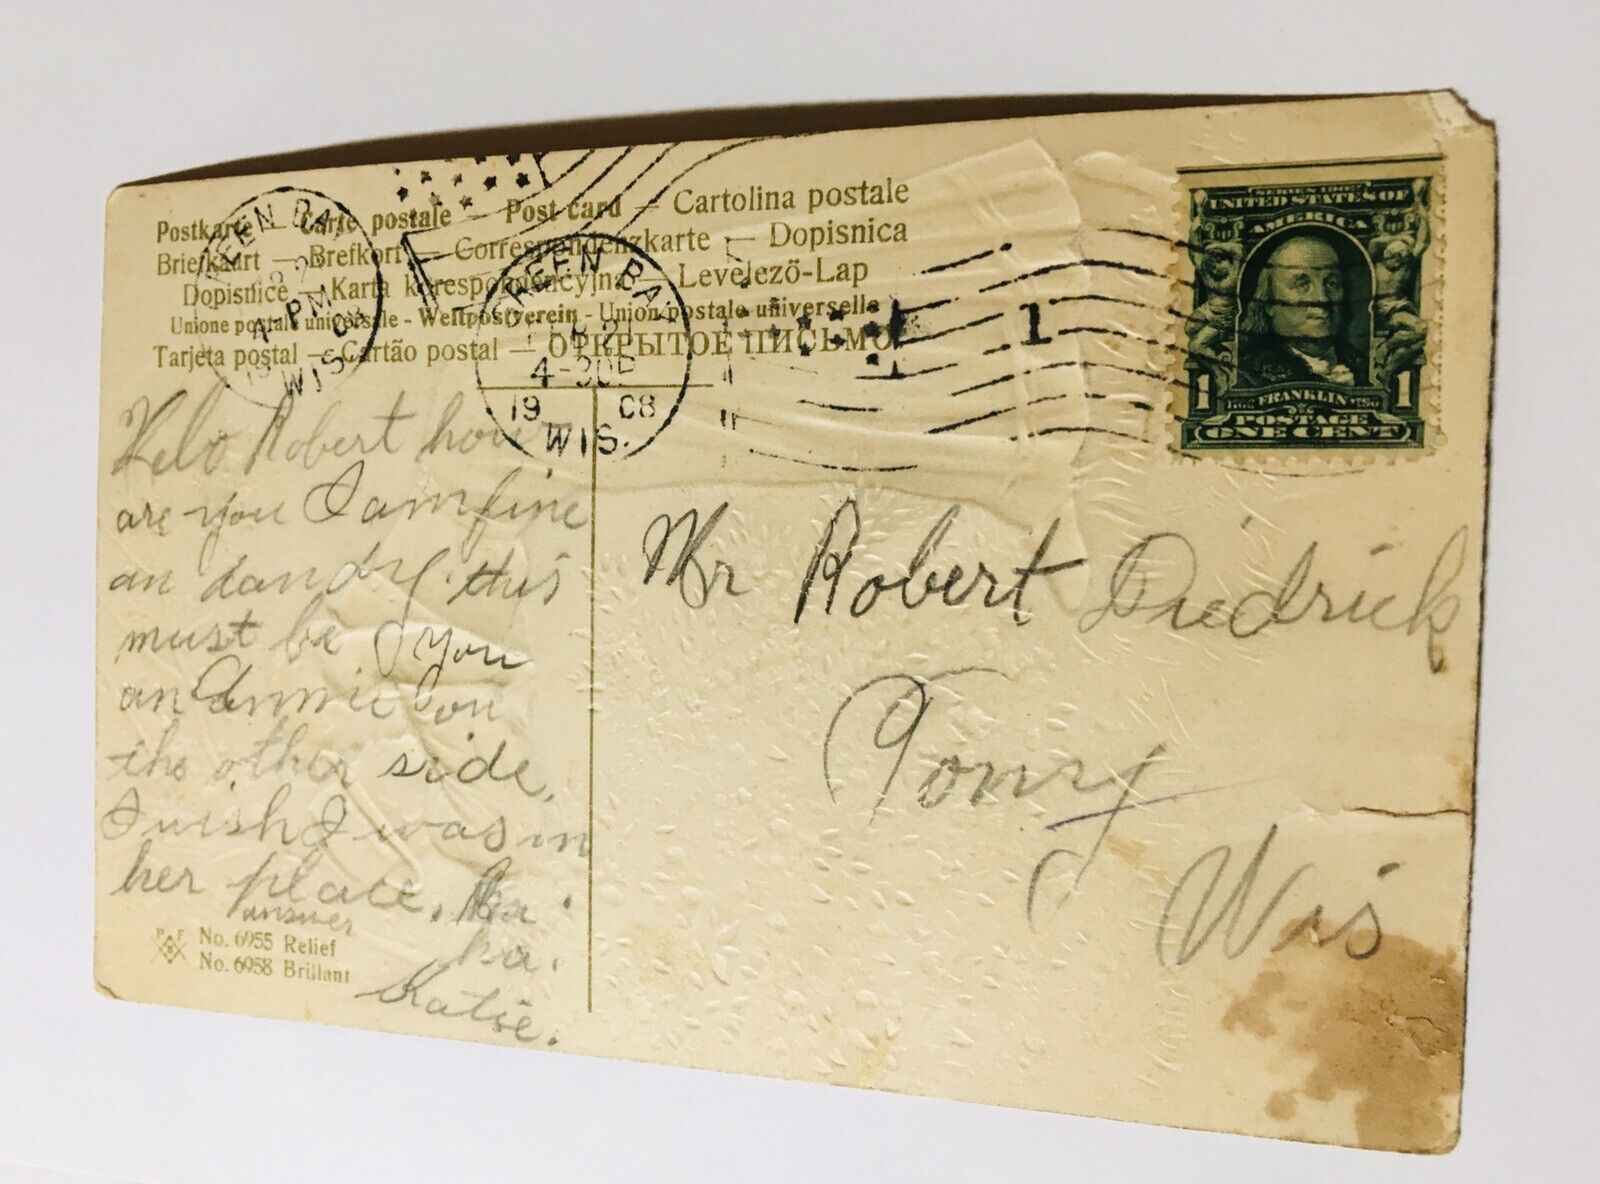 Postkarte — Carte postale — Post card — Cartolina postale
Briefkaart — Brefkort — Correspondenzkarte — Dopisnica
Dopisnice — Karta korespondencyjna — Levelező-Lap
Unione postale universale - Weltpostverein - Union postale universelle
Tarjeta postal — Cartão postal — ОТКРЫТОЕ ПИСЬМО
GREEN BAY
PM
WIS.
GREEN BAY
4-30P
1908
WIS.
1
SERIES 1902
UNITED STATES OF
AMERICA
FRANKLIN
1 POSTAGE 1
ONE CENT
Helo Robert how
are you I am fine
an dandy. this
must be you
an Annie on
the other side.
I wish I was in
her place. Ha.
ha.
answer
Katie.
Mr Robert Diedrick
Tony
Wis
PFB
No. 6955 Relief
No. 6958 Brillant